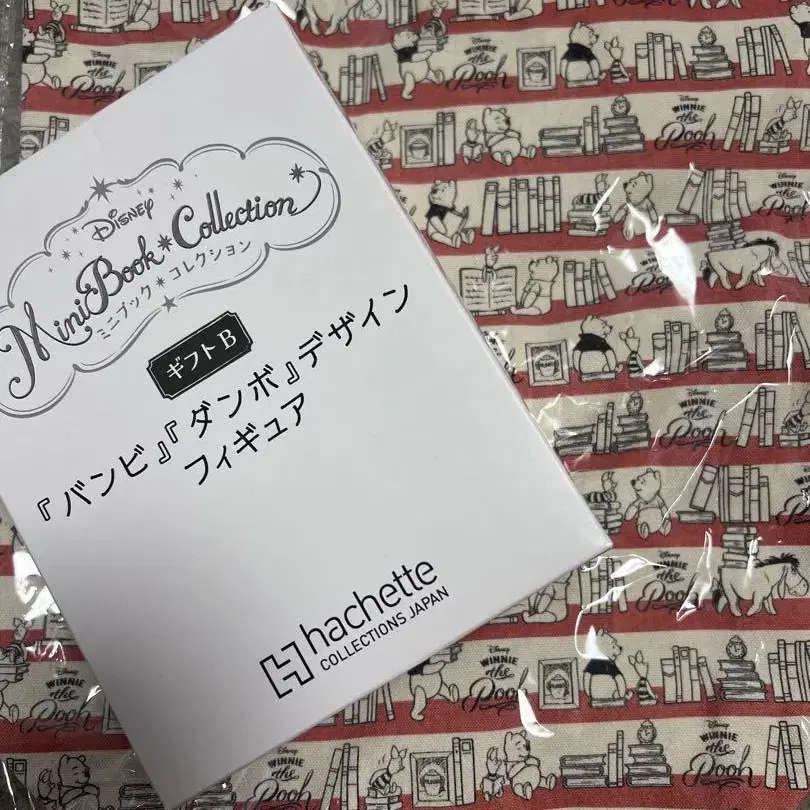 DISNEY
Mini Book * Collection
ミニブック * コレクション
ギフト B
『バンビ』『ダンボ』デザイン
フィギュア
hachette
COLLECTIONS JAPAN
Disney
WINNIE
the
Pooh